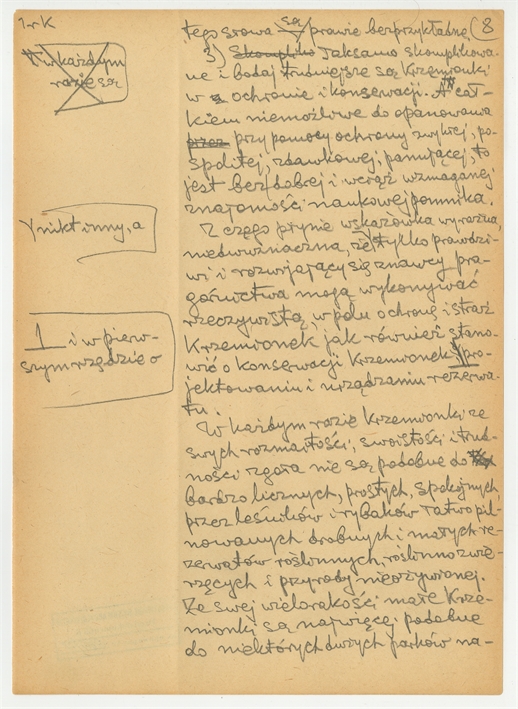 1-rK
(8
W każdym
razie są
Y nikt inny, a
1 i w pierw-
szym rzędzie o
tego słowa są prawie bezprzykładne,
3) Skompliko Tak samo skomplikowa-
ne i bodaj trudniejsze są Krzemionki
w ochronie i konserwacji. A cał-
kiem niemożliwe do opanowania
przez przy pomocy ochrony zwykłej, po-
spolitej, zdawkowej, panującej, to
jest bez dobrej i wciąż wzmaganej
znajomości naukowej pomnika.
Z czego płynie wskazówka wyraźna,
niedwuznaczna, że tylko prawdzi-
wi i rozwijający się znawcy pra-
górnictwa mogą wykonywać
rzeczywistą, w polu ochronę i straż
Krzemionek jak również stano-
wić o konserwacji Krzemionek 1 pro-
jektowaniu i urządzaniu rezerwa-
tu.
W każdym razie Krzemionki ze
swych rozmaitości, swoistości i trud-
ności zgoła nie są podobne do
bardzo licznych, prostych, spokojnych
przez leśników i rybaków łatwo pil-
nowanych drobnych i małych re-
zerwatów roślinnych, roślinnozwie-
rzęcych i przyrody nieożywionej.
Ze swej wielorakości małe Krze-
mionki są najwięcej podobne
do niektórych dużych parków na-